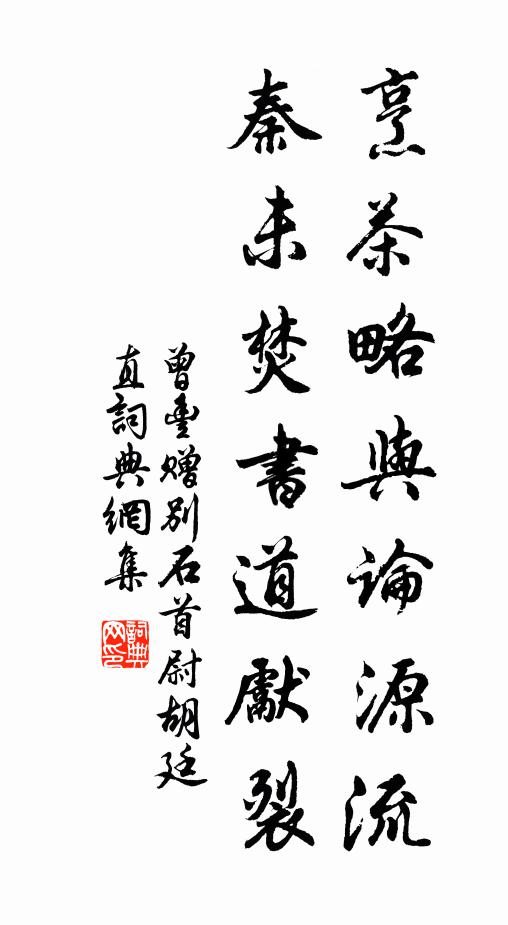 烹茶略與論源流
秦未焚書道獻裂
曾豐贈別石首尉胡廷
直詞典網集
詞典
网印